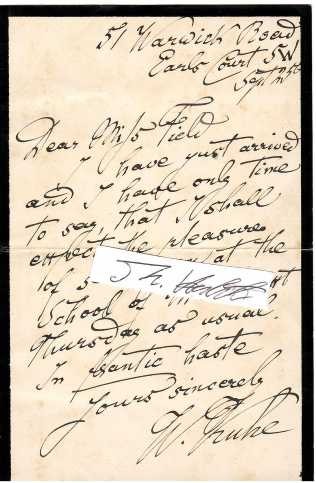 51 Warwick Road
Earls Court SW
Sept
Dear Miss Field
I have just arrived
and I have only time
to say, that I shall
expect the pleasure
of s at the
School of
Thursday as usual.
In frantic haste
Yours sincerely
W.